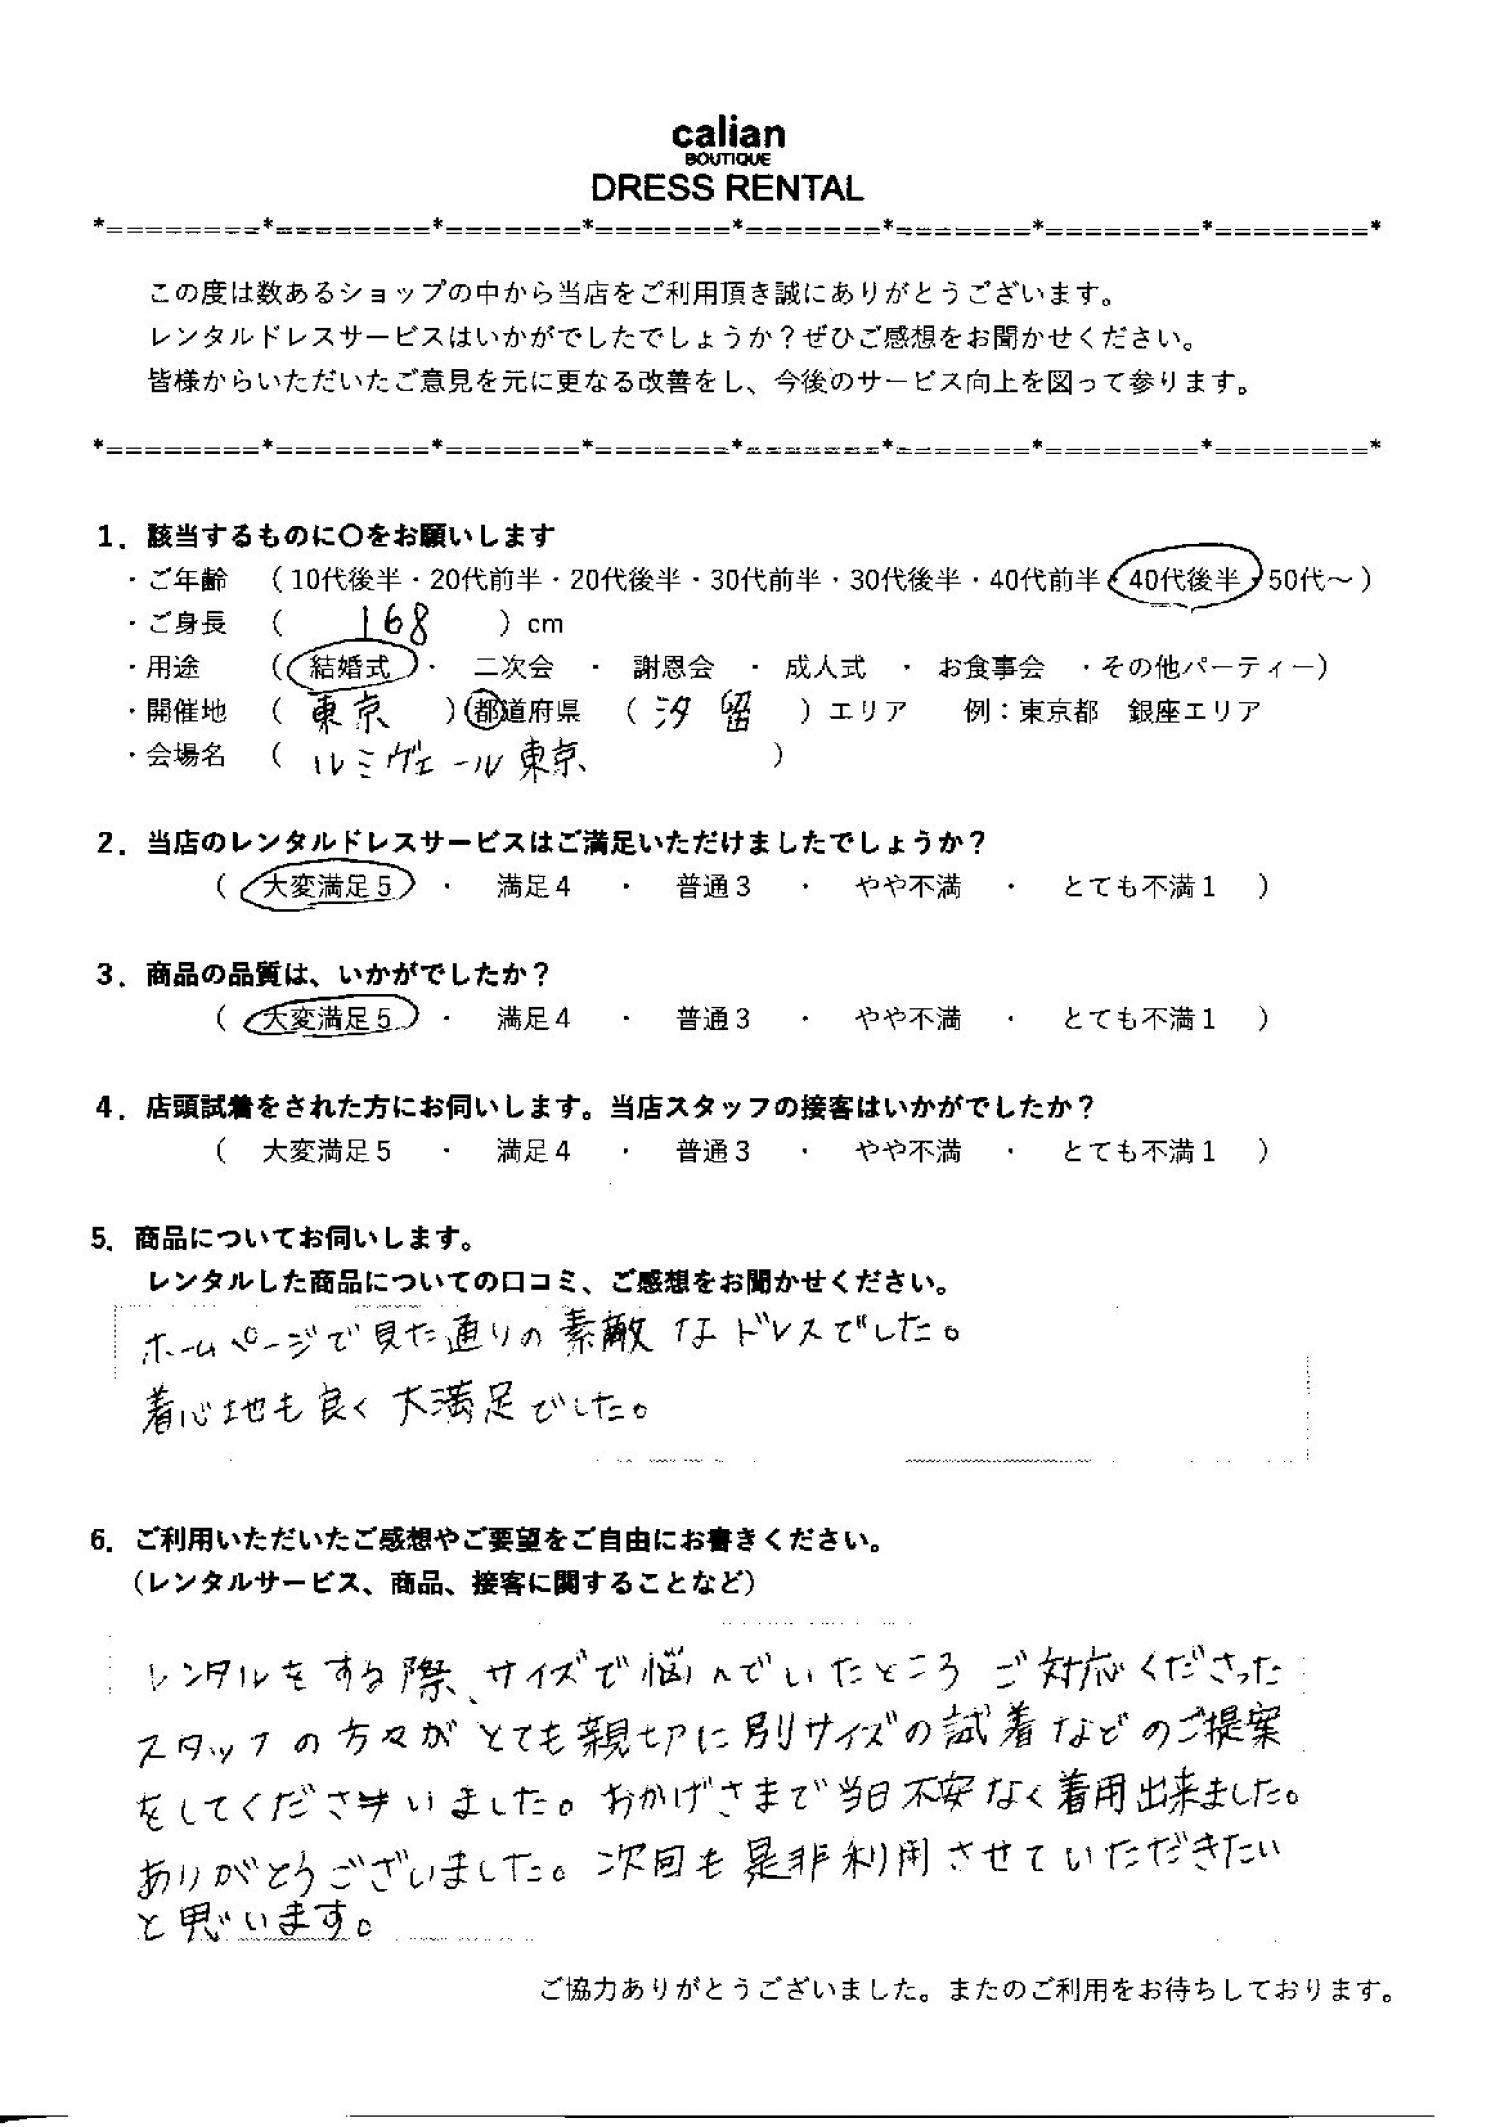 calian
BOUTIQUE
DRESS RENTAL
*========*========*=======*=======*=======*=======*========*========*
この度は数あるショップの中から当店をご利用頂き誠にありがとうございます。
レンタルドレスサービスはいかがでしたでしょうか？ぜひご感想をお聞かせください。
皆様からいただいたご意見を元に更なる改善をし、今後のサービス向上を図って参ります。
*========*========*=======*=======*=======*=======*========*========*
1．該当するものに〇をお願いします
・ご年齢 （10代後半・20代前半・20代後半・30代前半・30代後半・40代前半・40代後半・50代～）
・ご身長 （ 168 ）cm
・用途 （結婚式・ 二次会 ・ 謝恩会 ・ 成人式 ・ お食事会 ・その他パーティー）
・開催地 （ 東京 ）都道府県 （ 汐留 ）エリア 例：東京都 銀座エリア
・会場名 （ ルミヴェール東京 ）
2．当店のレンタルドレスサービスはご満足いただけましたでしょうか？
（ 大変満足5 ・ 満足4 ・ 普通3 ・ やや不満 ・ とても不満1 ）
3．商品の品質は、いかがでしたか？
（ 大変満足5 ・ 満足4 ・ 普通3 ・ やや不満 ・ とても不満1 ）
4．店頭試着をされた方にお伺いします。当店スタッフの接客はいかがでしたか？
（ 大変満足5 ・ 満足4 ・ 普通3 ・ やや不満 ・ とても不満1 ）
5．商品についてお伺いします。
レンタルした商品についての口コミ、ご感想をお聞かせください。
ホームページで見た通りの素敵なドレスでした。
着心地も良く大満足でした。
6．ご利用いただいたご感想やご要望をご自由にお書きください。
（レンタルサービス、商品、接客に関することなど）
レンタルをする際、サイズで悩んでいたところ ご対応くださった
スタッフの方々がとても親切に別サイズの試着などのご提案
をしてくださいました。おかげさまで当日不安なく着用出来ました。
ありがとうございました。次回も是非利用させていただきたい
と思います。
ご協力ありがとうございました。またのご利用をお待ちしております。